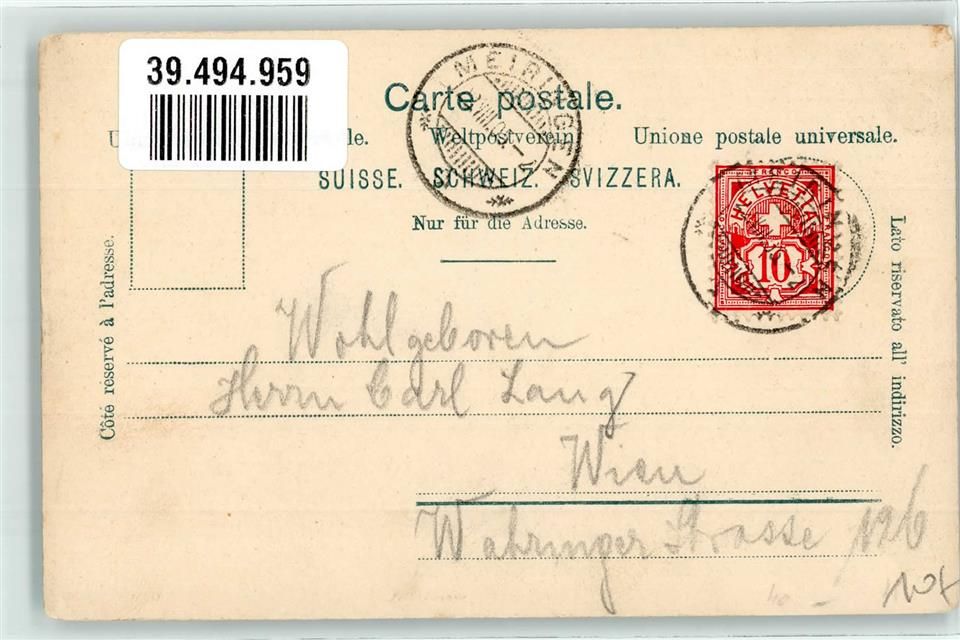 39.494.959
MEIRINGEN
Carte postale.
le. Weltpostverein. Unione postale universale.
SUISSE. SCHWEIZ. SVIZZERA.
Nur für die Adresse.
FRANCO
HELVETIA
10
Côté réservé à l'adresse.
Lato riservato all' indirizzo.
Wohlgeboren
Herrn Carl Lang
Wien
Wahringer Strasse 126